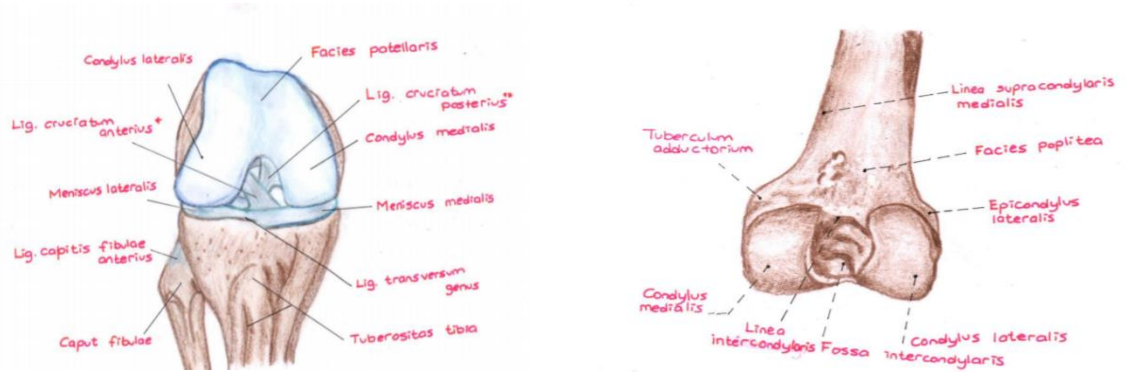 Condylus lateralis
Facies patellaris
Lig. cruciatum
anterius*
Lig. cruciatum
posterius**
Condylus medialis
Meniscus lateralis
Meniscus medialis
Lig. capitis fibulae
anterius
Lig. transversum
genus
Caput fibulae
Tuberositas tibia
Linea supracondylaris
medialis
Tuberculum
adductorium
Facies poplitea
Epicondylus
lateralis
Condylus
medialis
Linea
intercondylaris
Fossa
intercondylaris
Condylus lateralis